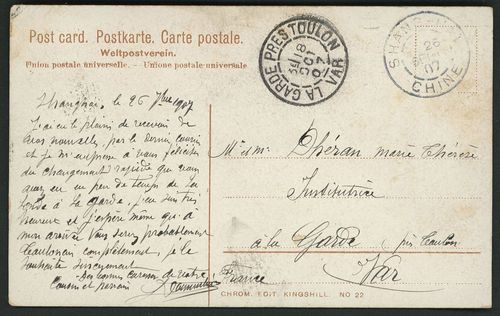 Post card. Postkarte. Carte postale.
Weltpostverein.
Union postale universelle. - Unione postale universale.
LA GARDE PRES TOULON
VAR
8
OCT
07
SHANGHAI
26
07
CHINE
Shanghai, le 26 7bre 1907
J'ai eu le plaisir de recevoir de
vos nouvelles par le dernier courrier
et je m'empresse à vous féliciter
du changement rapide que vous
avez eu en peu de temps de la
à la Garde, j'en suis très
heureux et j'espère même qu'à
mon arrivée vous serez probablement
Toulonnais complètement, je le
souhaite sincèrement.
Des bons de votre
cousin et parrain
Mr et Mme Dhéran Marie Thérèse
Institutrice
à la Garde près Toulon
Var
France
CHROM. EDIT. KINGSHILL. NO 22